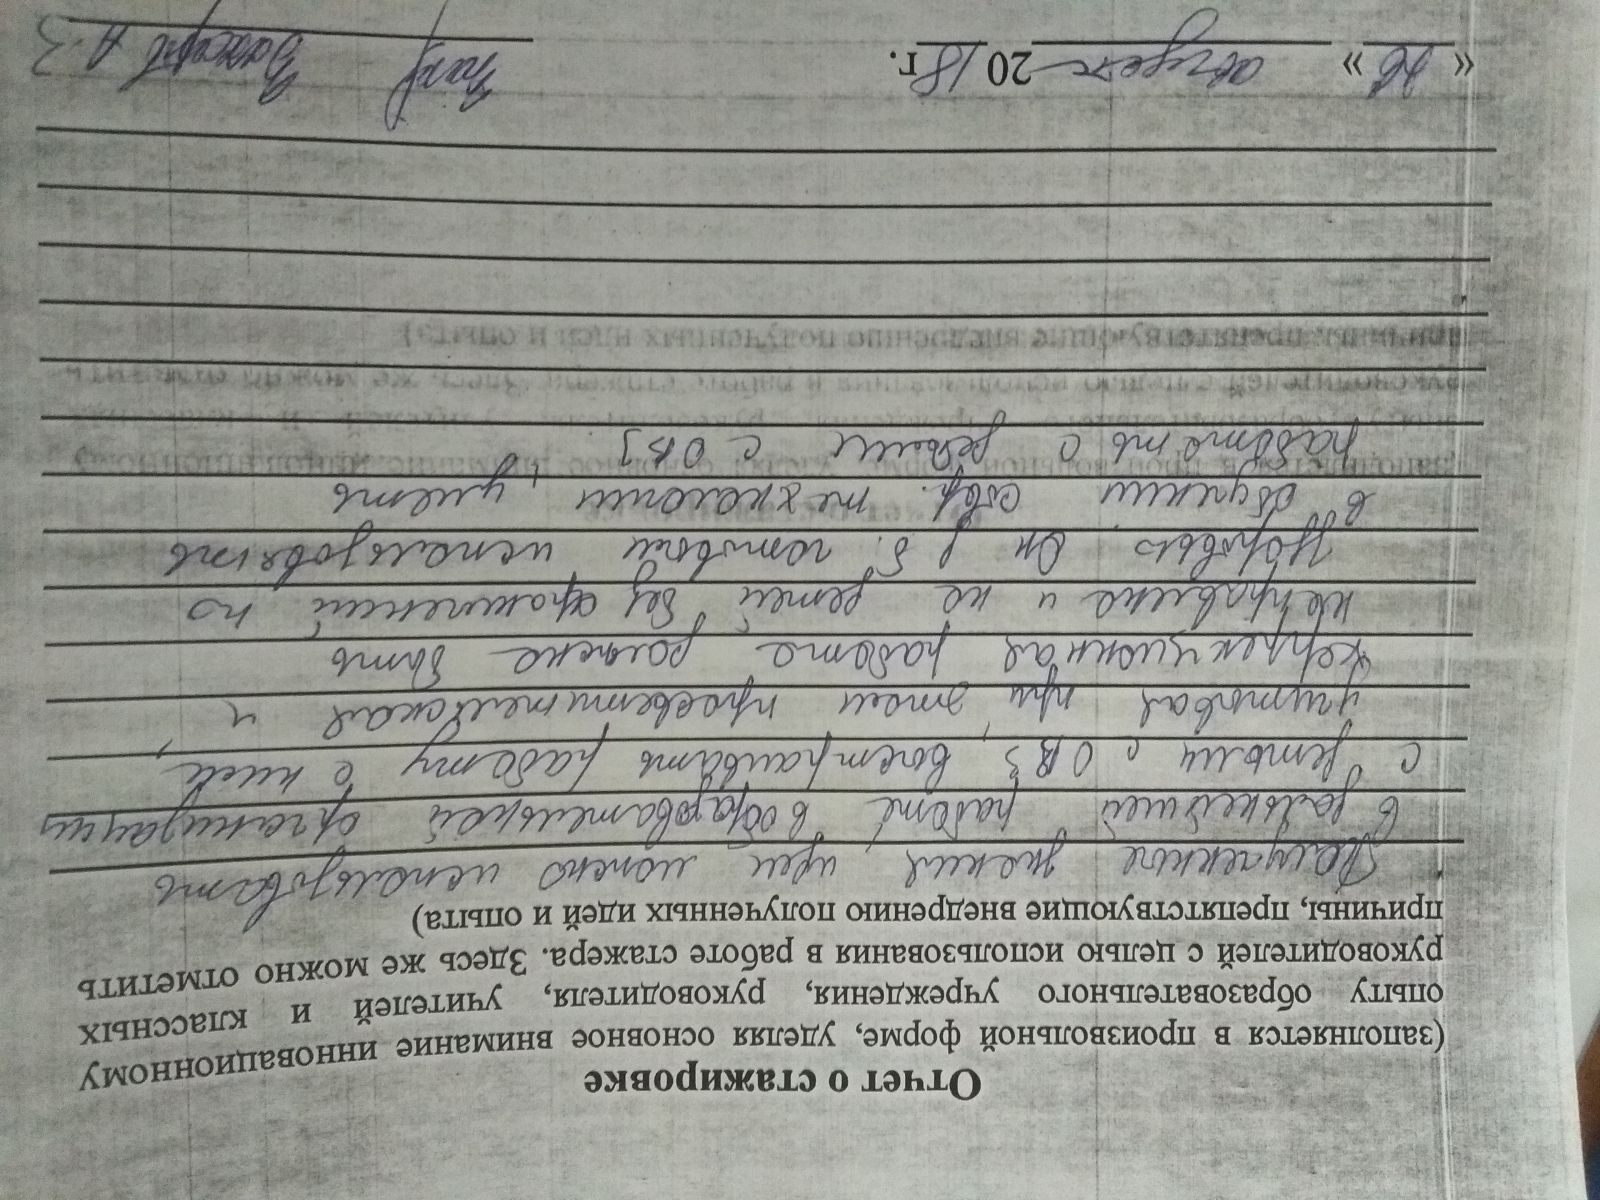 Отчет о стажировке
(заполняется в произвольной форме, уделяя основное внимание инновационному
опыту образовательного учреждения, руководителя, учителей и классных
руководителей с целью использования в работе стажера. Здесь же можно отметить
причины, препятствующие внедрению полученных идей и опыта)
Полученные знания, идеи можно использовать
в дальнейшей работе, в образовательной организации
с детьми с ОВЗ, выстраивать работу с ними,
учитывая при этом просветительская и
коррекционная работа должна быть
направлена и на детей без ограничений по
здоровью. Он д. б. готовым использовать
в обучении совр. технологии, уметь
работать с детьми с ОВЗ
« » август 2018 г.